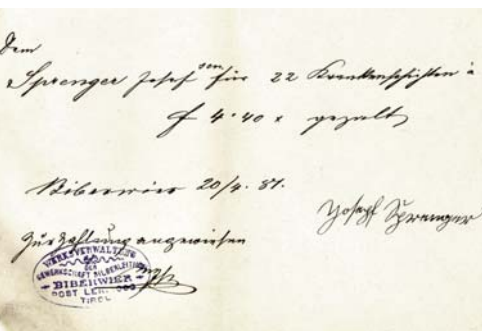 Dem
Sprenger Josef sen für 22 Krankenschichten à
f 4·40 x gezalt
Biberwier 20/4. 87.
Joseph Sprenger
Zur Zahlung angewiesen
WERKSVERWALTUNG
DER
GEWERKSCHAFT SILBERLEITHEN
BIBERWIER
POST LERMOOS
TIROL